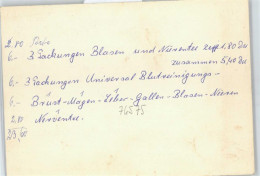 2.80
6.- 3 Packungen Blasen und Nierentee
zusammen 5,40
6.- 3 Packungen Universal Blutreinigungs-
6.- Brüst-Mägen-Leber-Gallen-Blasen-Nieren
2.80 Nerventee.
76575